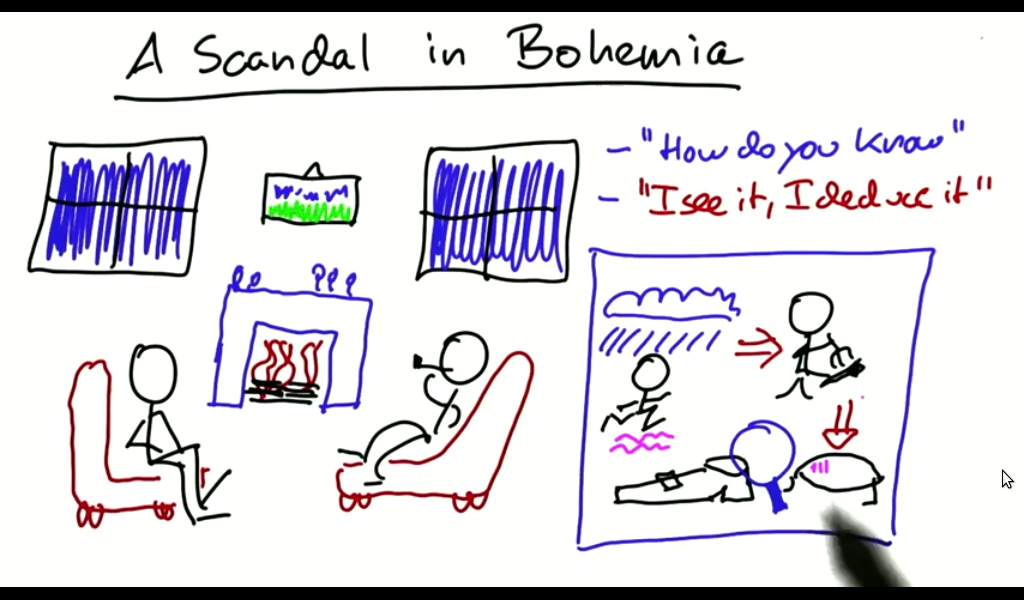 A Scandal in Bohemia
- "How do you know"
- "I see it, I deduce it"